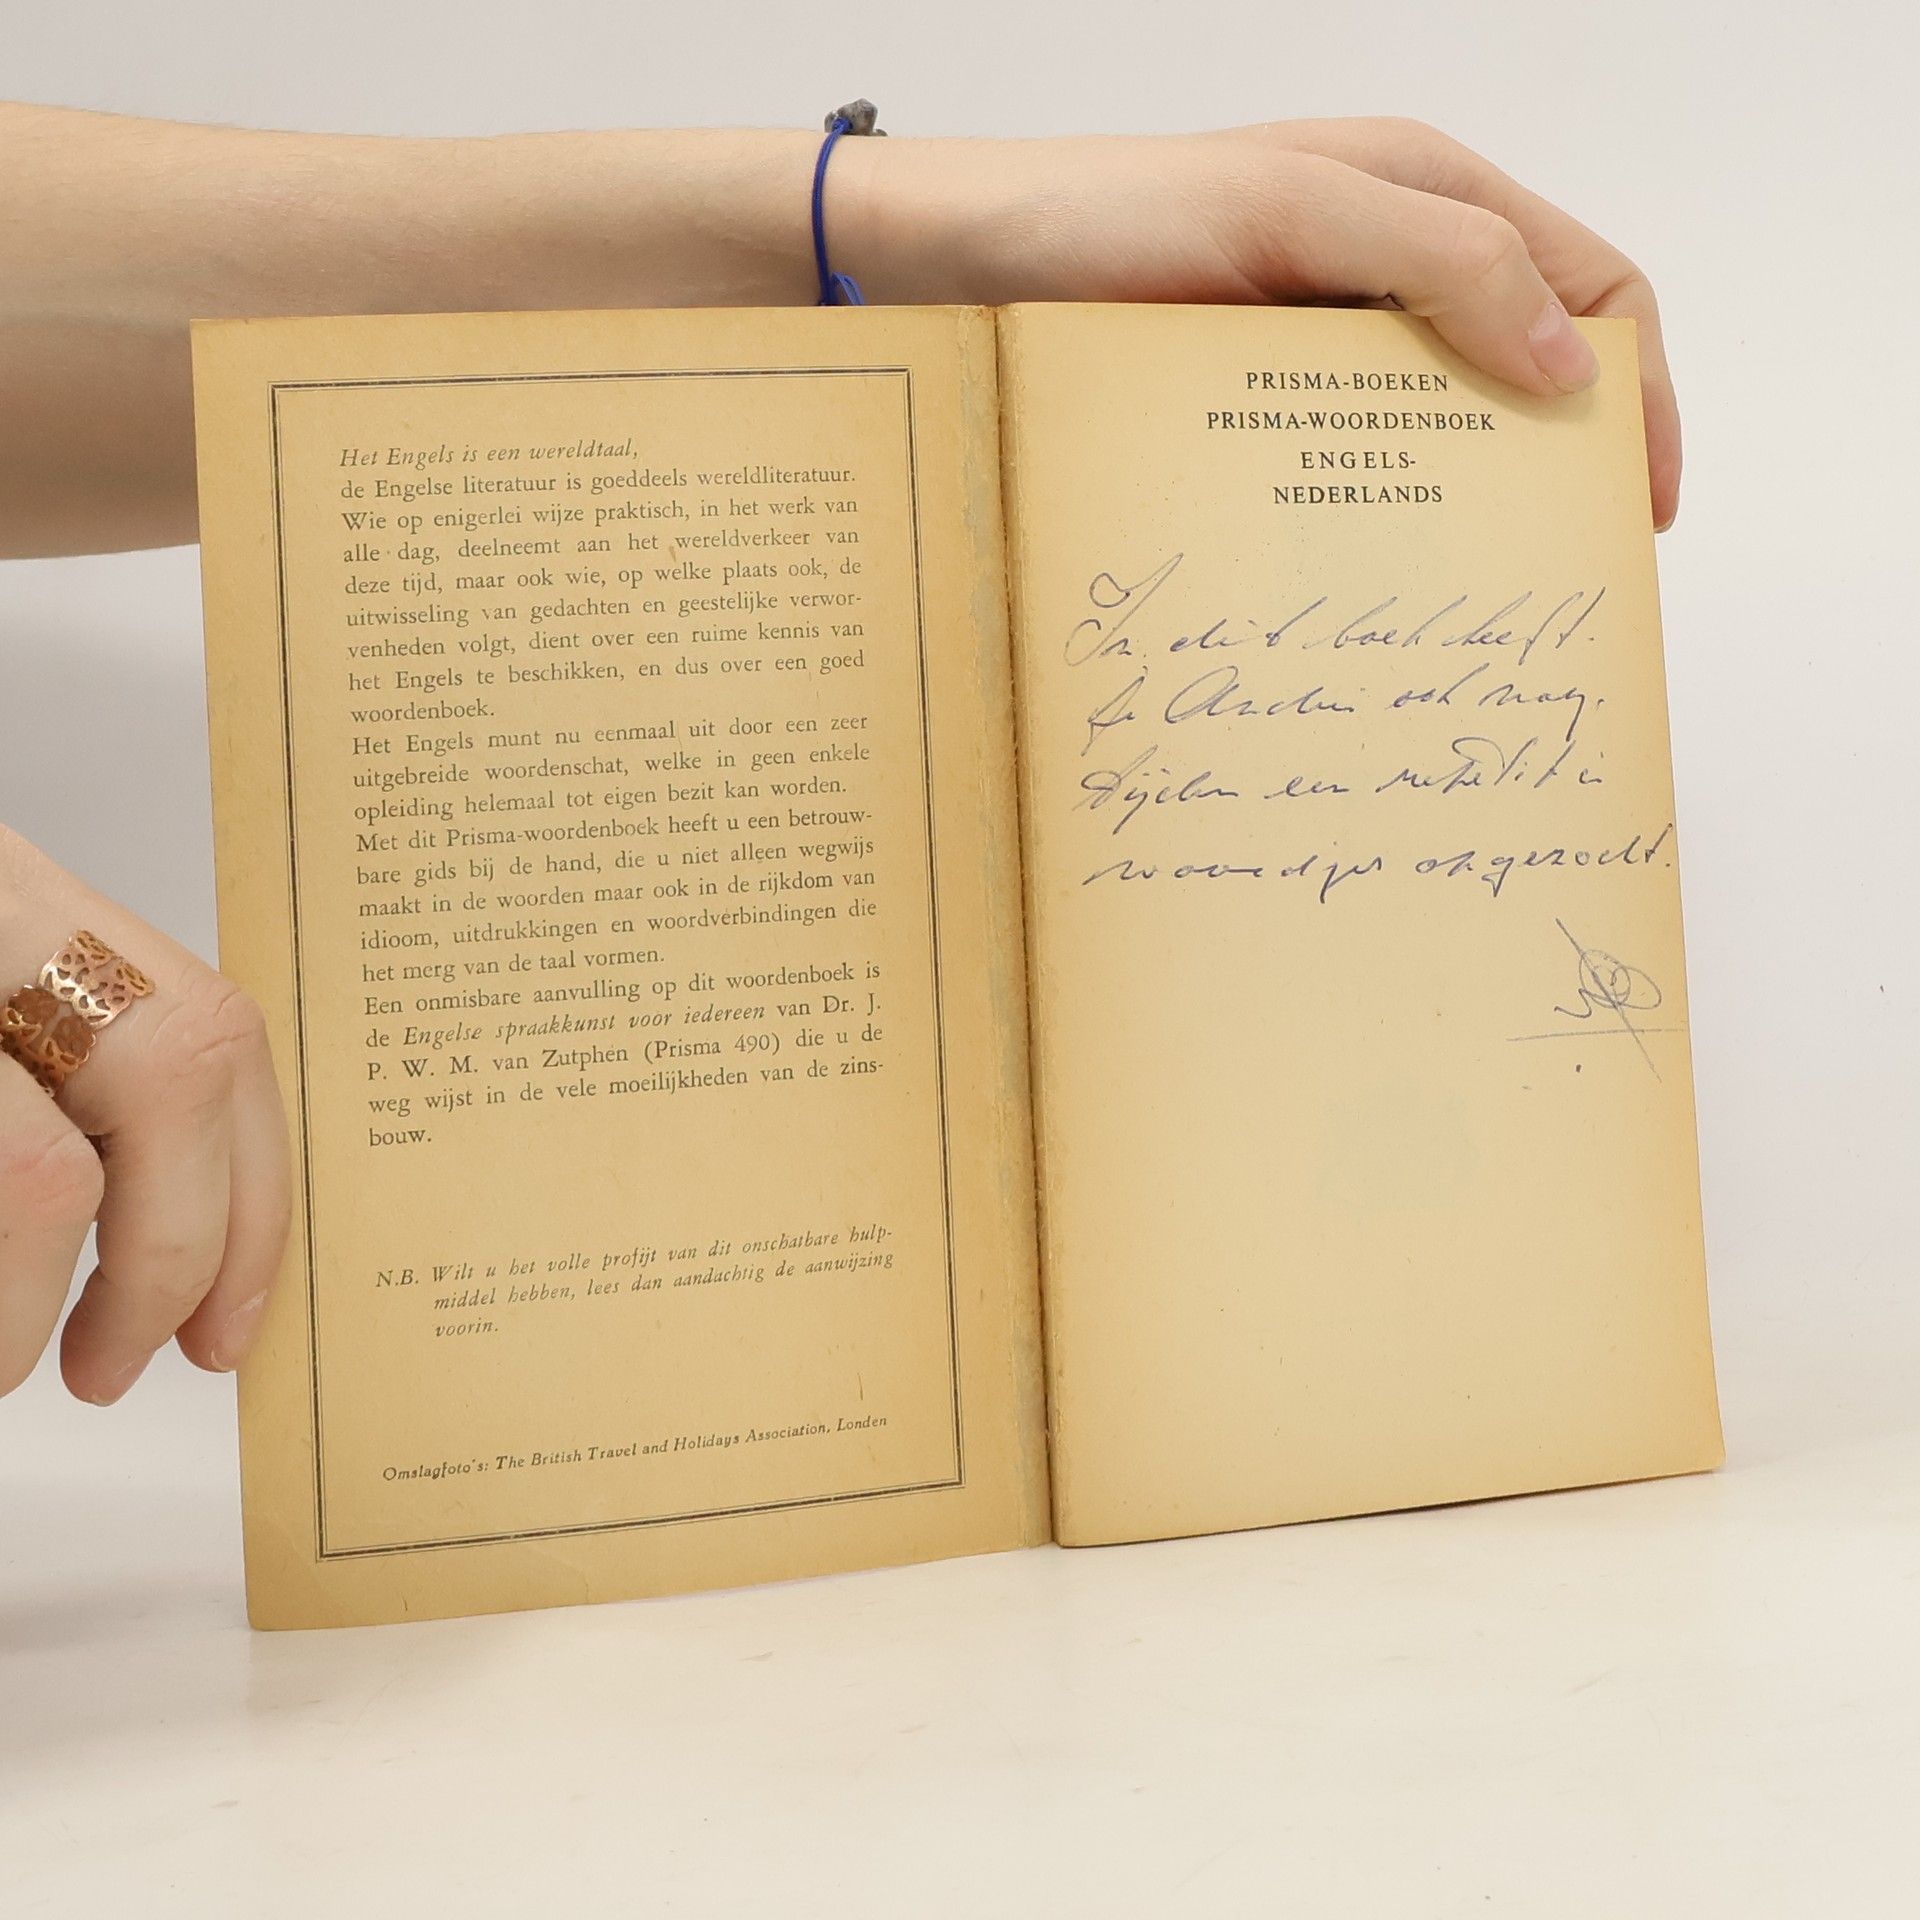 Het Engels is een wereldtaal,
de Engelse literatuur is goeddeels wereldliteratuur.
Wie op enigerlei wijze praktisch, in het werk van
alle dag, deelneemt aan het wereldverkeer van
deze tijd, maar ook wie, op welke plaats ook, de
uitwisseling van gedachten en geestelijke verwor-
venheden volgt, dient over een ruime kennis van
het Engels te beschikken, en dus over een goed
woordenboek.
Het Engels munt nu eenmaal uit door een zeer
uitgebreide woordenschat, welke in geen enkele
opleiding helemaal tot eigen bezit kan worden.
Met dit Prisma-woordenboek heeft u een betrouw-
bare gids bij de hand, die u niet alleen wegwijs
maakt in de woorden maar ook in de rijkdom van
idioom, uitdrukkingen en woordverbindingen die
het merg van de taal vormen.
Een onmisbare aanvulling op dit woordenboek is
de Engelse spraakkunst voor iedereen van Dr. J.
P. W. M. van Zutphen (Prisma 490) die u de
weg wijst in de vele moeilijkheden van de zins-
bouw.
N.B. Wilt u het volle profijt van dit onschatbare hulp-
middel hebben, lees dan aandachtig de aanwijzing
voorin.
Omslagfoto's: The British Travel and Holidays Association, Londen
PRISMA-BOEKEN
PRISMA-WOORDENBOEK
ENGELS-
NEDERLANDS
In dit boek heeft
ook nog
tijdens een
woordjes opgezocht.